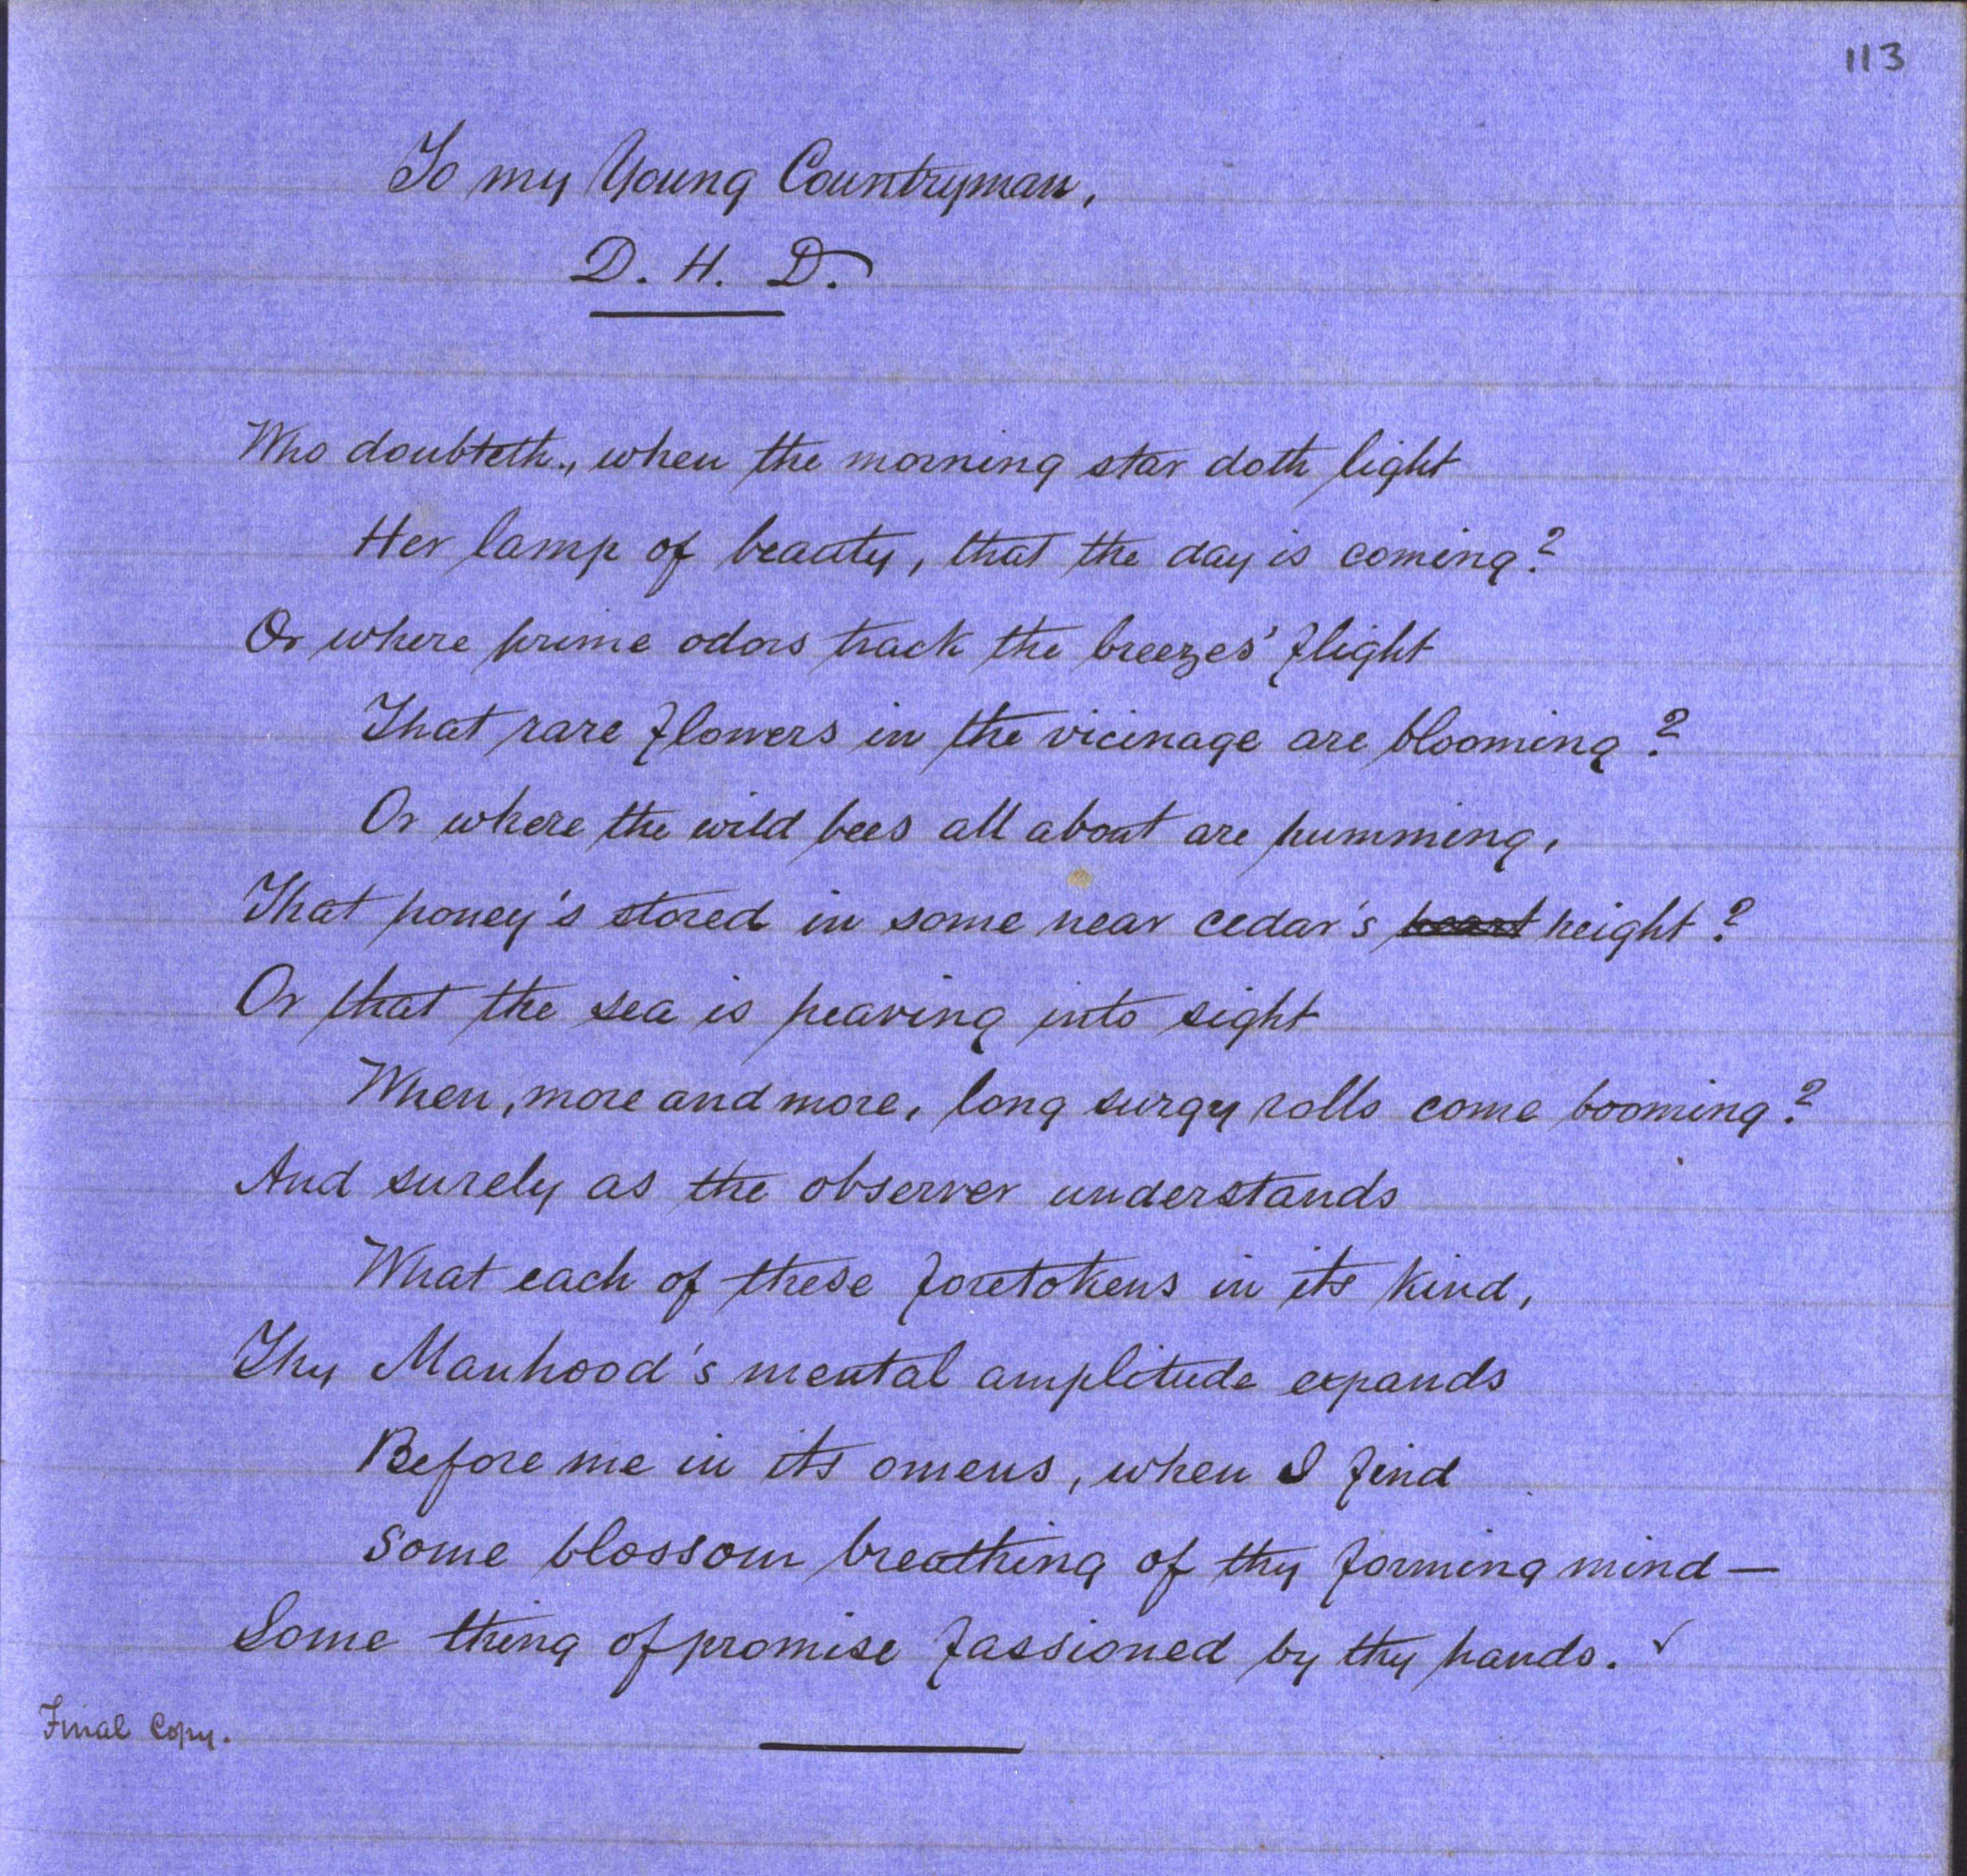 113
To my Young Countryman,
D. H. D.
Who doubteth, when the morning star doth light
Her lamp of beauty, that the day is coming?
Or where prime odors track the breezes' flight
That rare flowers in the vicinage are blooming?
Or where the wild bees all about are humming,
That honey's stored in some near cedar's heart height?
Or that the sea is heaving into sight
When, more and more, long surgy rolls come booming?
And surely as the observer understands
What each of these foretokens in its kind,
Thy Manhood's mental amplitude expands
Before me in its omens, when I find
Some blossom breathing of thy forming mind—
Some thing of promise fassioned by thy hands.
Final Copy.